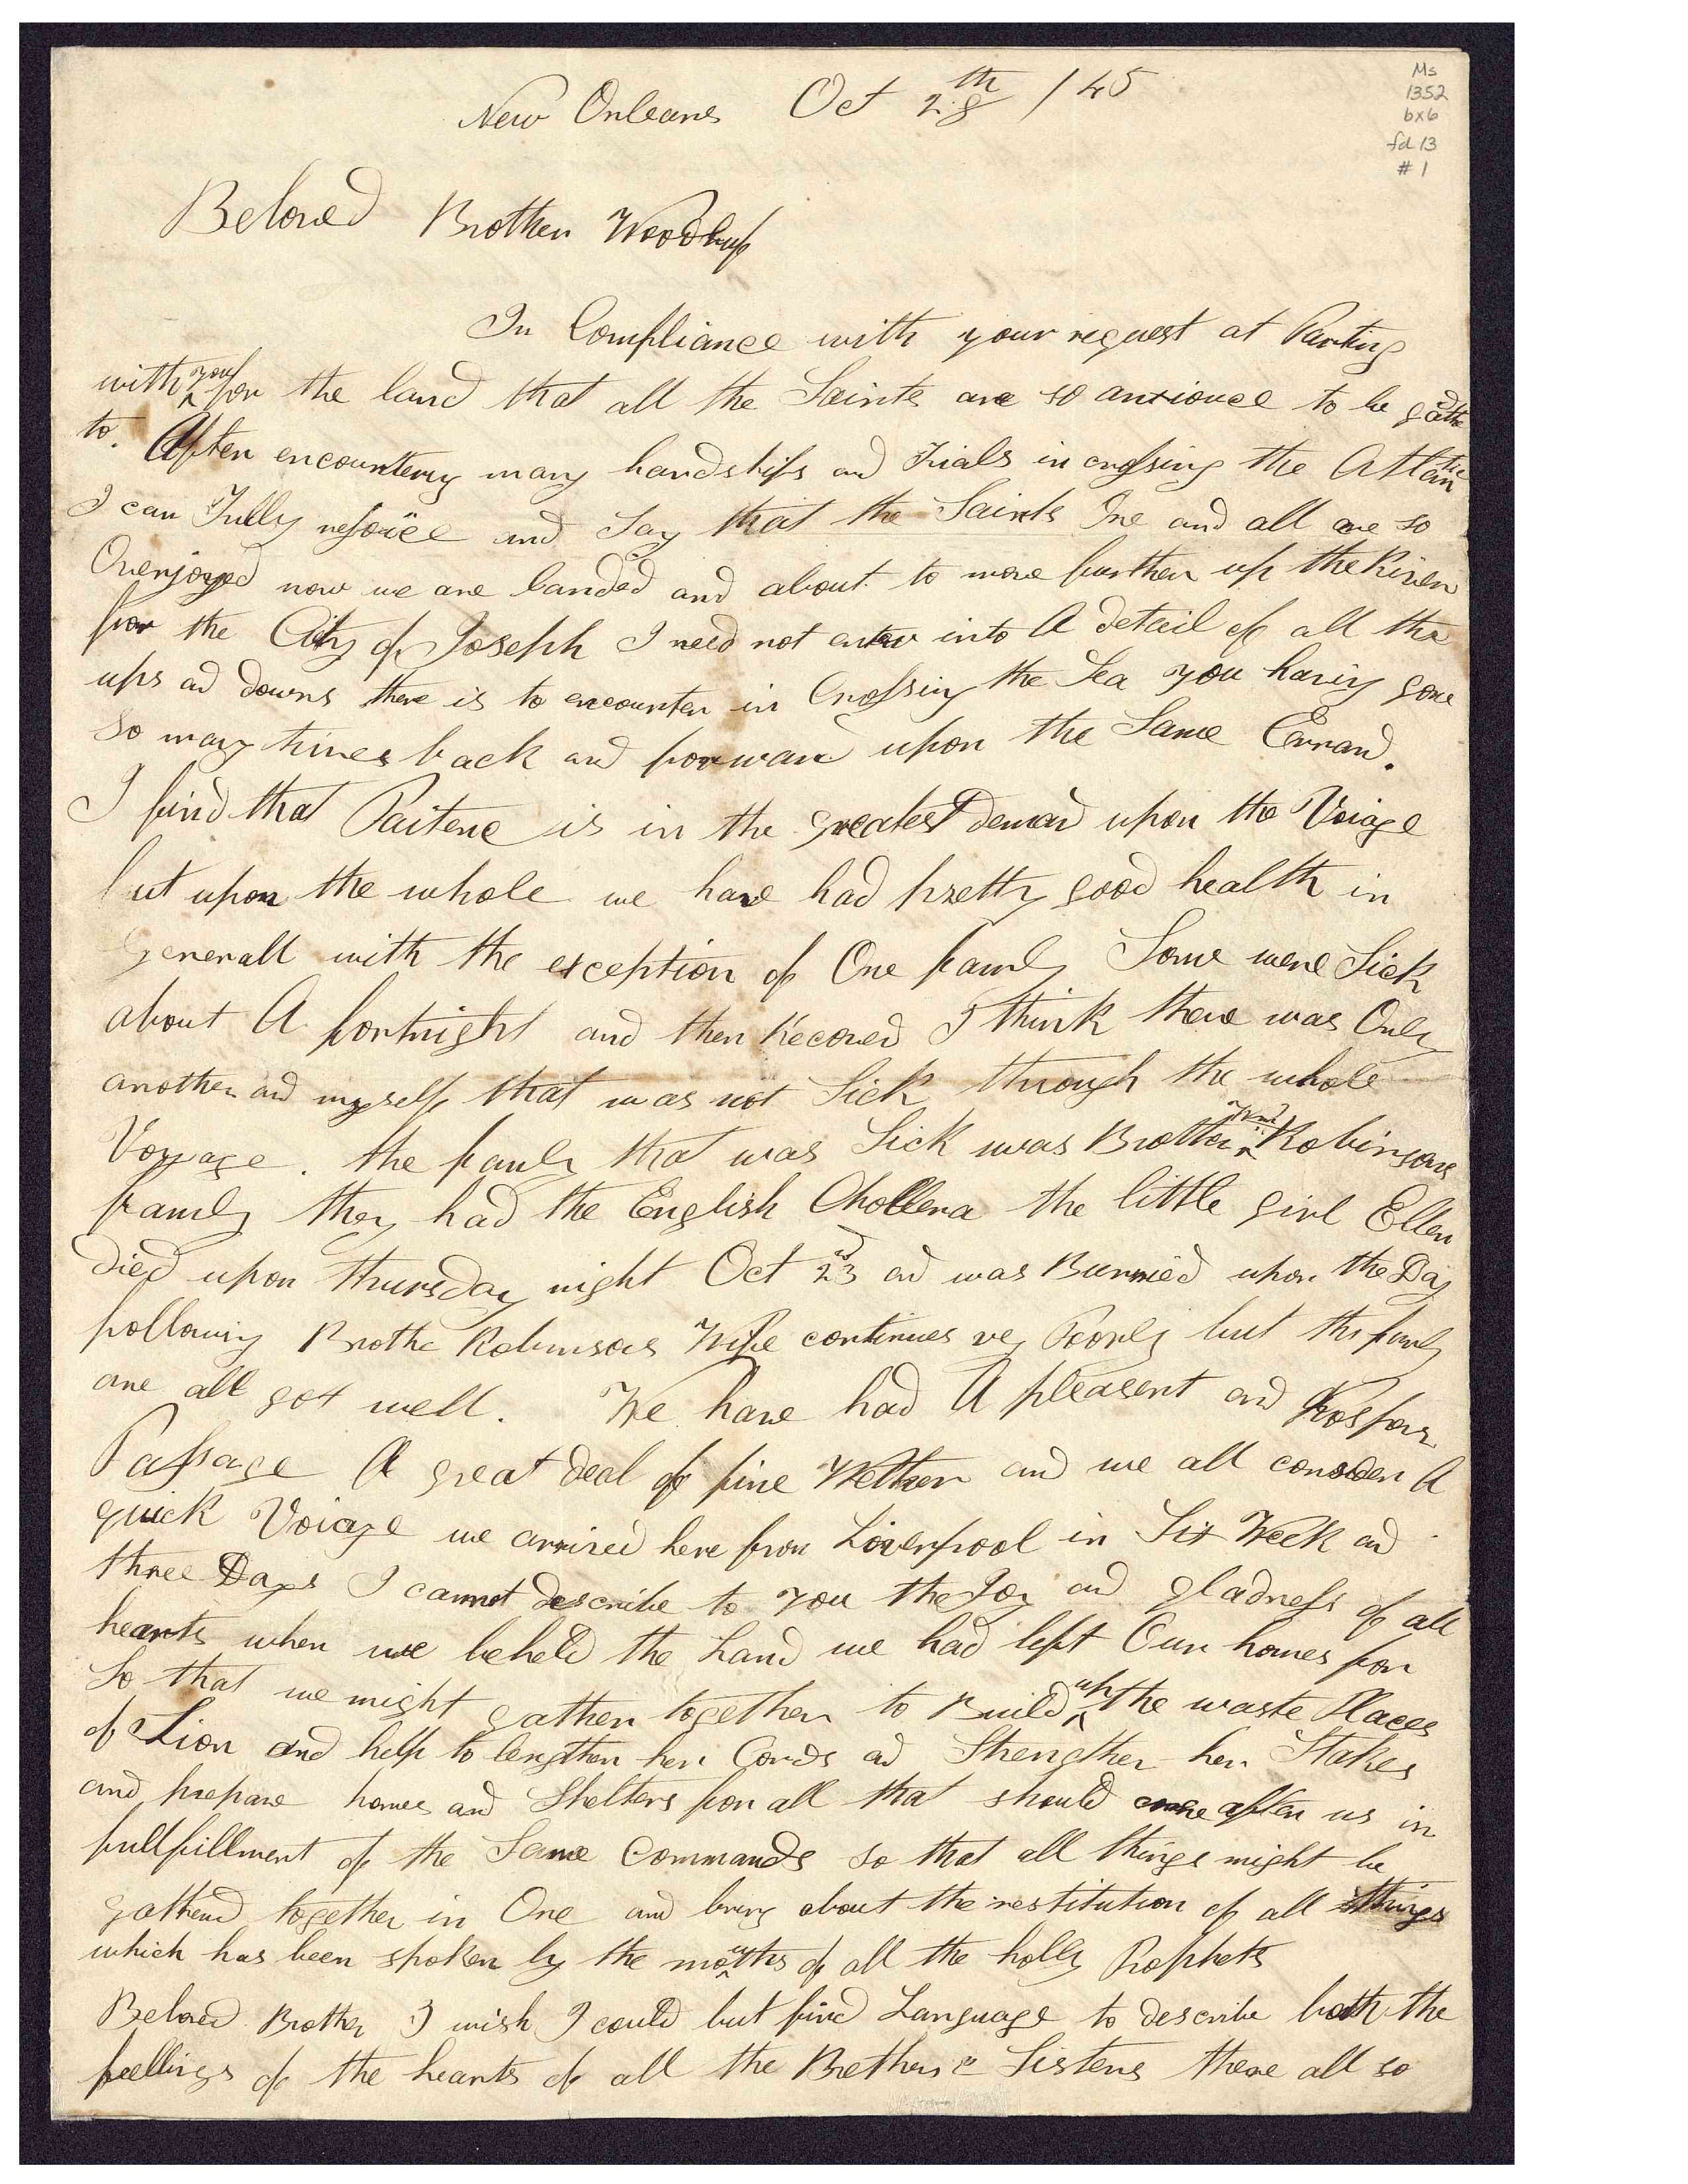 New Orleans Oct 28th /45
Ms
1352
bx6
fd 13
# 1
Beloved Brother Woodruf
In Compliance with your request at Parting
with you for the land that all the Saints are so anxiouce to be gathed
to. After encountering many hardships and Trials in crossing the Atlantic
I can Fully rejoice and Say that the Saints One and all are so
Overjoyed now we are landed and about to move further up the River
for the City of Joseph I need not enter into A detail of all the
ups and downs there is to encounter in Crossing the Sea you having gone
So many times back and forward upon the Same Errand.
I find that Paitene is in the greatest Demand upon the Voiage
but upon the whole we have had pretty good health in
generall with the exception of One family Some were Sick
about A fortnight and then Recoved I think there was Only
another and myself that was not Sick through the whole
Voyage. the family that was Sick was Brother Wm Robinsons
family they had the English Chollera the little girl Ellen
died upon thursday night Oct 23rd and was Burried upon the Day
following Brothe Robinsons Wife continues very Poorly but the family
are all got well. We have had A pleasent and Prosporus
Passage A great deal of fine Wether and we all consider A
quick Voiage we arrived here from Liverpool in Six Week and
three Days I cannot describe to you the Joy and gladness of all
hearts when we beheld the Land we had left Our homes for
So that we might gather together to Build up the waste Places
of Zion and help to lengthen her Cords and Strengthen her Stakes
and prepare homes and Shelters for all that should come after us in
fullfillment of the Same Commands so that all things might be
gatherd together in One and bring about the restitution of all things
which has been spoken by the mouths of all the holly Prophets
Beloved Brother I wish I could but find Language to describe both the
feellings of the hearts of all the Brethern & Sisters there all so